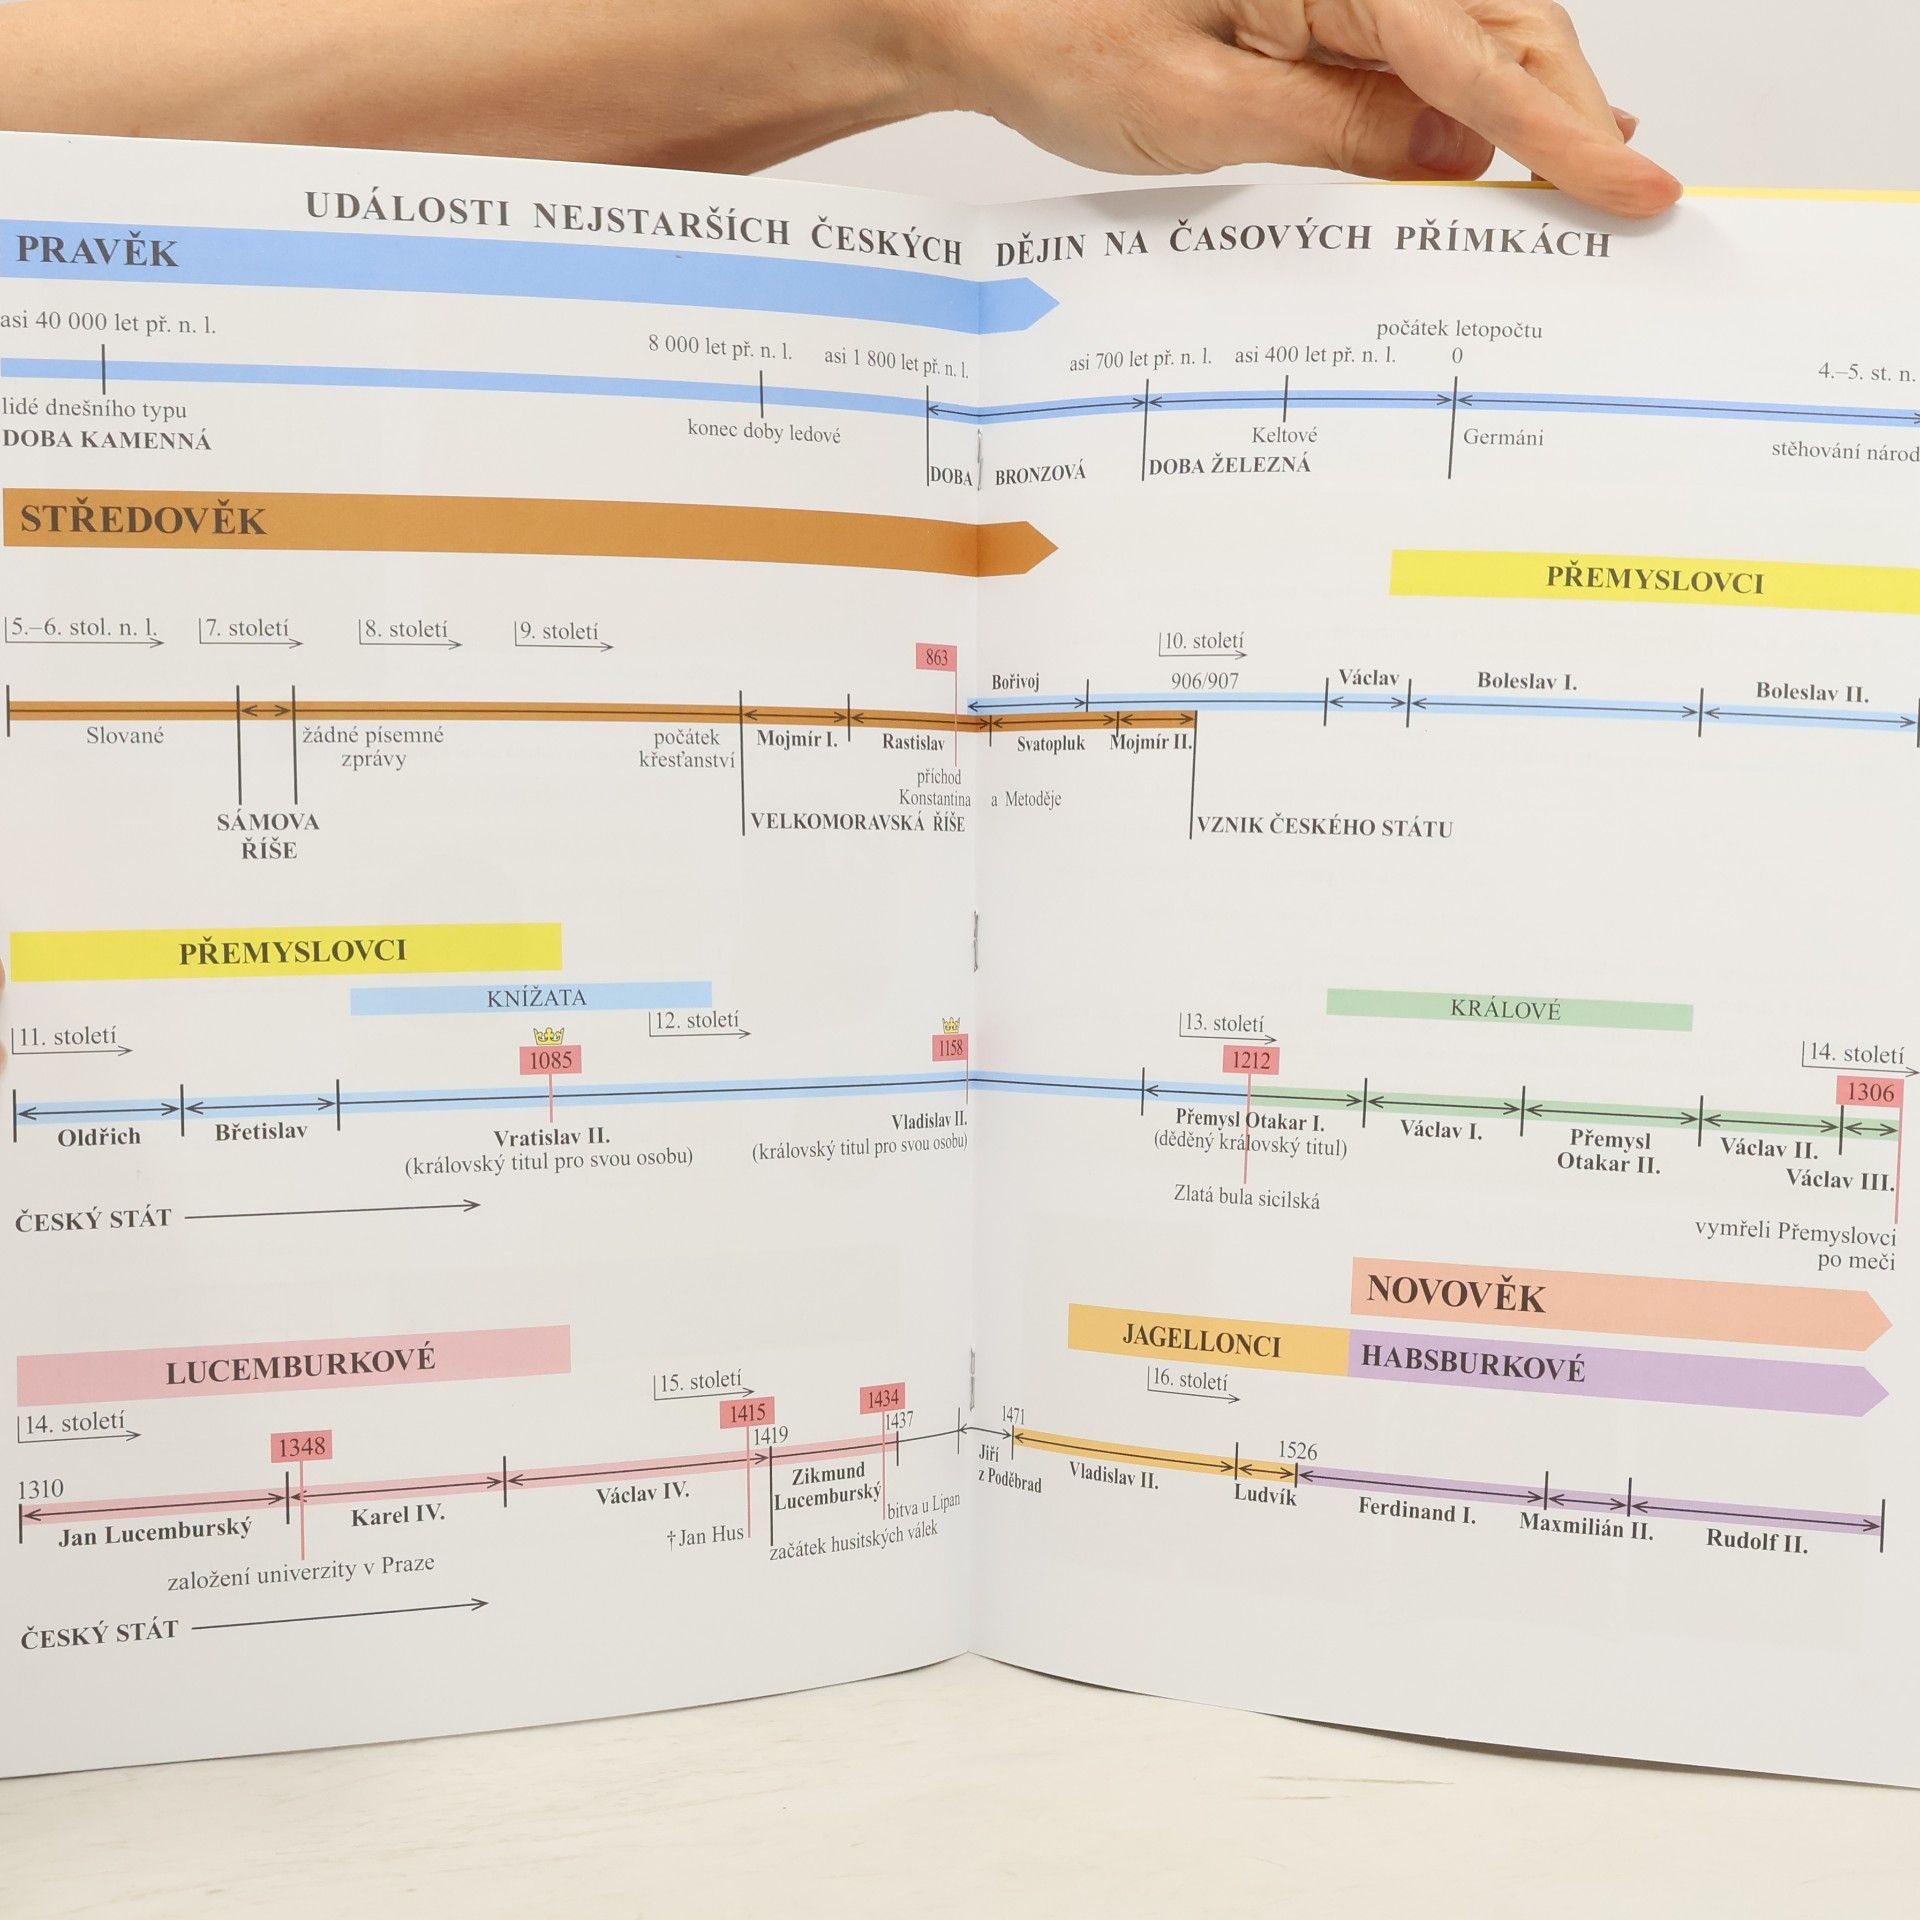 UDÁLOSTI NEJSTARŠÍCH ČESKÝCH DĚJIN NA ČASOVÝCH PŘÍMKÁCH
PRAVĚK
asi 40 000 let př. n. l.
8 000 let př. n. l.
asi 1 800 let př. n. l.
asi 700 let př. n. l.
asi 400 let př. n. l.
počátek letopočtu
0
4.–5. st. n.
lidé dnešního typu
DOBA KAMENNÁ
konec doby ledové
DOBA BRONZOVÁ
DOBA ŽELEZNÁ
Keltové
Germáni
stěhování národ
STŘEDOVĚK
PŘEMYSLOVCI
5.–6. stol. n. l.
7. století
8. století
9. století
863
10. století
906/907
Bořivoj
Václav
Boleslav I.
Boleslav II.
Slované
žádné písemné
zprávy
počátek
křesťanství
Mojmír I.
Rastislav
Svatopluk
Mojmír II.
příchod
Konstantina a Metoděje
SÁMOVA
ŘÍŠE
VELKOMORAVSKÁ ŘÍŠE
VZNIK ČESKÉHO STÁTU
PŘEMYSLOVCI
KNÍŽATA
KRÁLOVÉ
11. století
1085
12. století
1158
13. století
1212
14. století
1306
Oldřich
Břetislav
Vratislav II.
(královský titul pro svou osobu)
Vladislav II.
(královský titul pro svou osobu)
Přemysl Otakar I.
(děděný královský titul)
Zlatá bula sicilská
Václav I.
Přemysl
Otakar II.
Václav II.
Václav III.
vymřeli Přemyslovci
po meči
ČESKÝ STÁT
NOVOVĚK
LUCEMBURKOVÉ
JAGELLONCI
HABSBURKOVÉ
14. století
15. století
16. století
1310
1348
1415
1419
1434
1437
1471
1526
Jan Lucemburský
Karel IV.
Václav IV.
Zikmund
Lucemburský
Jiří
z Poděbrad
Vladislav II.
Ludvík
Ferdinand I.
Maxmilián II.
Rudolf II.
založení univerzity v Praze
† Jan Hus
bitva u Lipan
začátek husitských válek
ČESKÝ STÁT